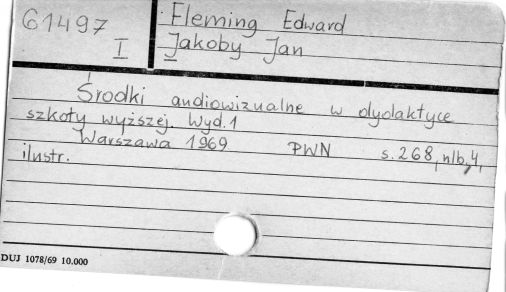 61497
I
Fleming Edward
Jakoby Jan
Środki audiowizualne w dydaktyce
szkoły wyższej. Wyd. 1
Warszawa 1969 PWN s. 268, nlb, 4,
ilustr.
DUJ 1078/69 10.000